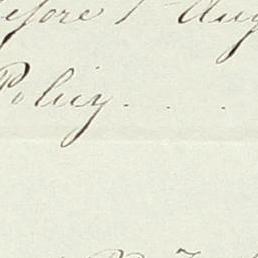 before 1 Aug
Policy. . .